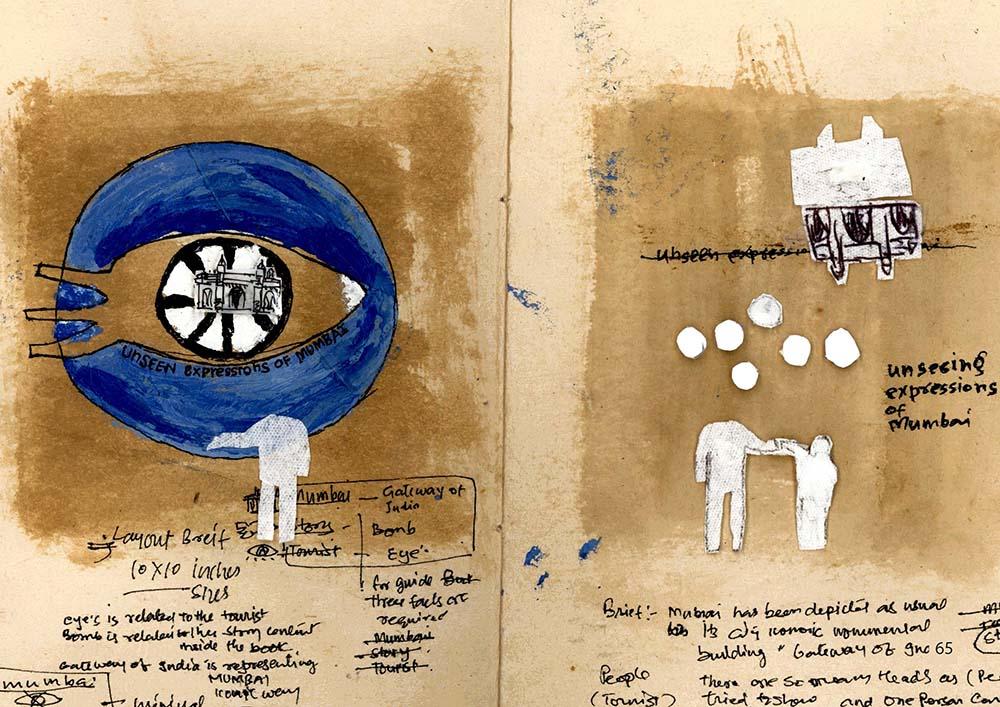 UNSEEN Expressions OF MUMBAI
Mumbai — Gateway of
India
Story — Bomb
Tourist — Eye
Layout Breif
10X10 inches
Sizes
for guide Book
three facts are
required
Mumbai
Story
Tourist
eye's is related to the tourist
Bomb is related to her story content
inside the book.
Gateway of India is representing
MUMBAI
mumbai
minimal
unseen expressi
unseeing
expressions
of
Mumbai
Brief:- Mumbai has been depicted as usual
its city iconoic monumental
building "Gateway of
People
(Tourist)
there are so many Heads as (Pe
tried to show and one Person Can